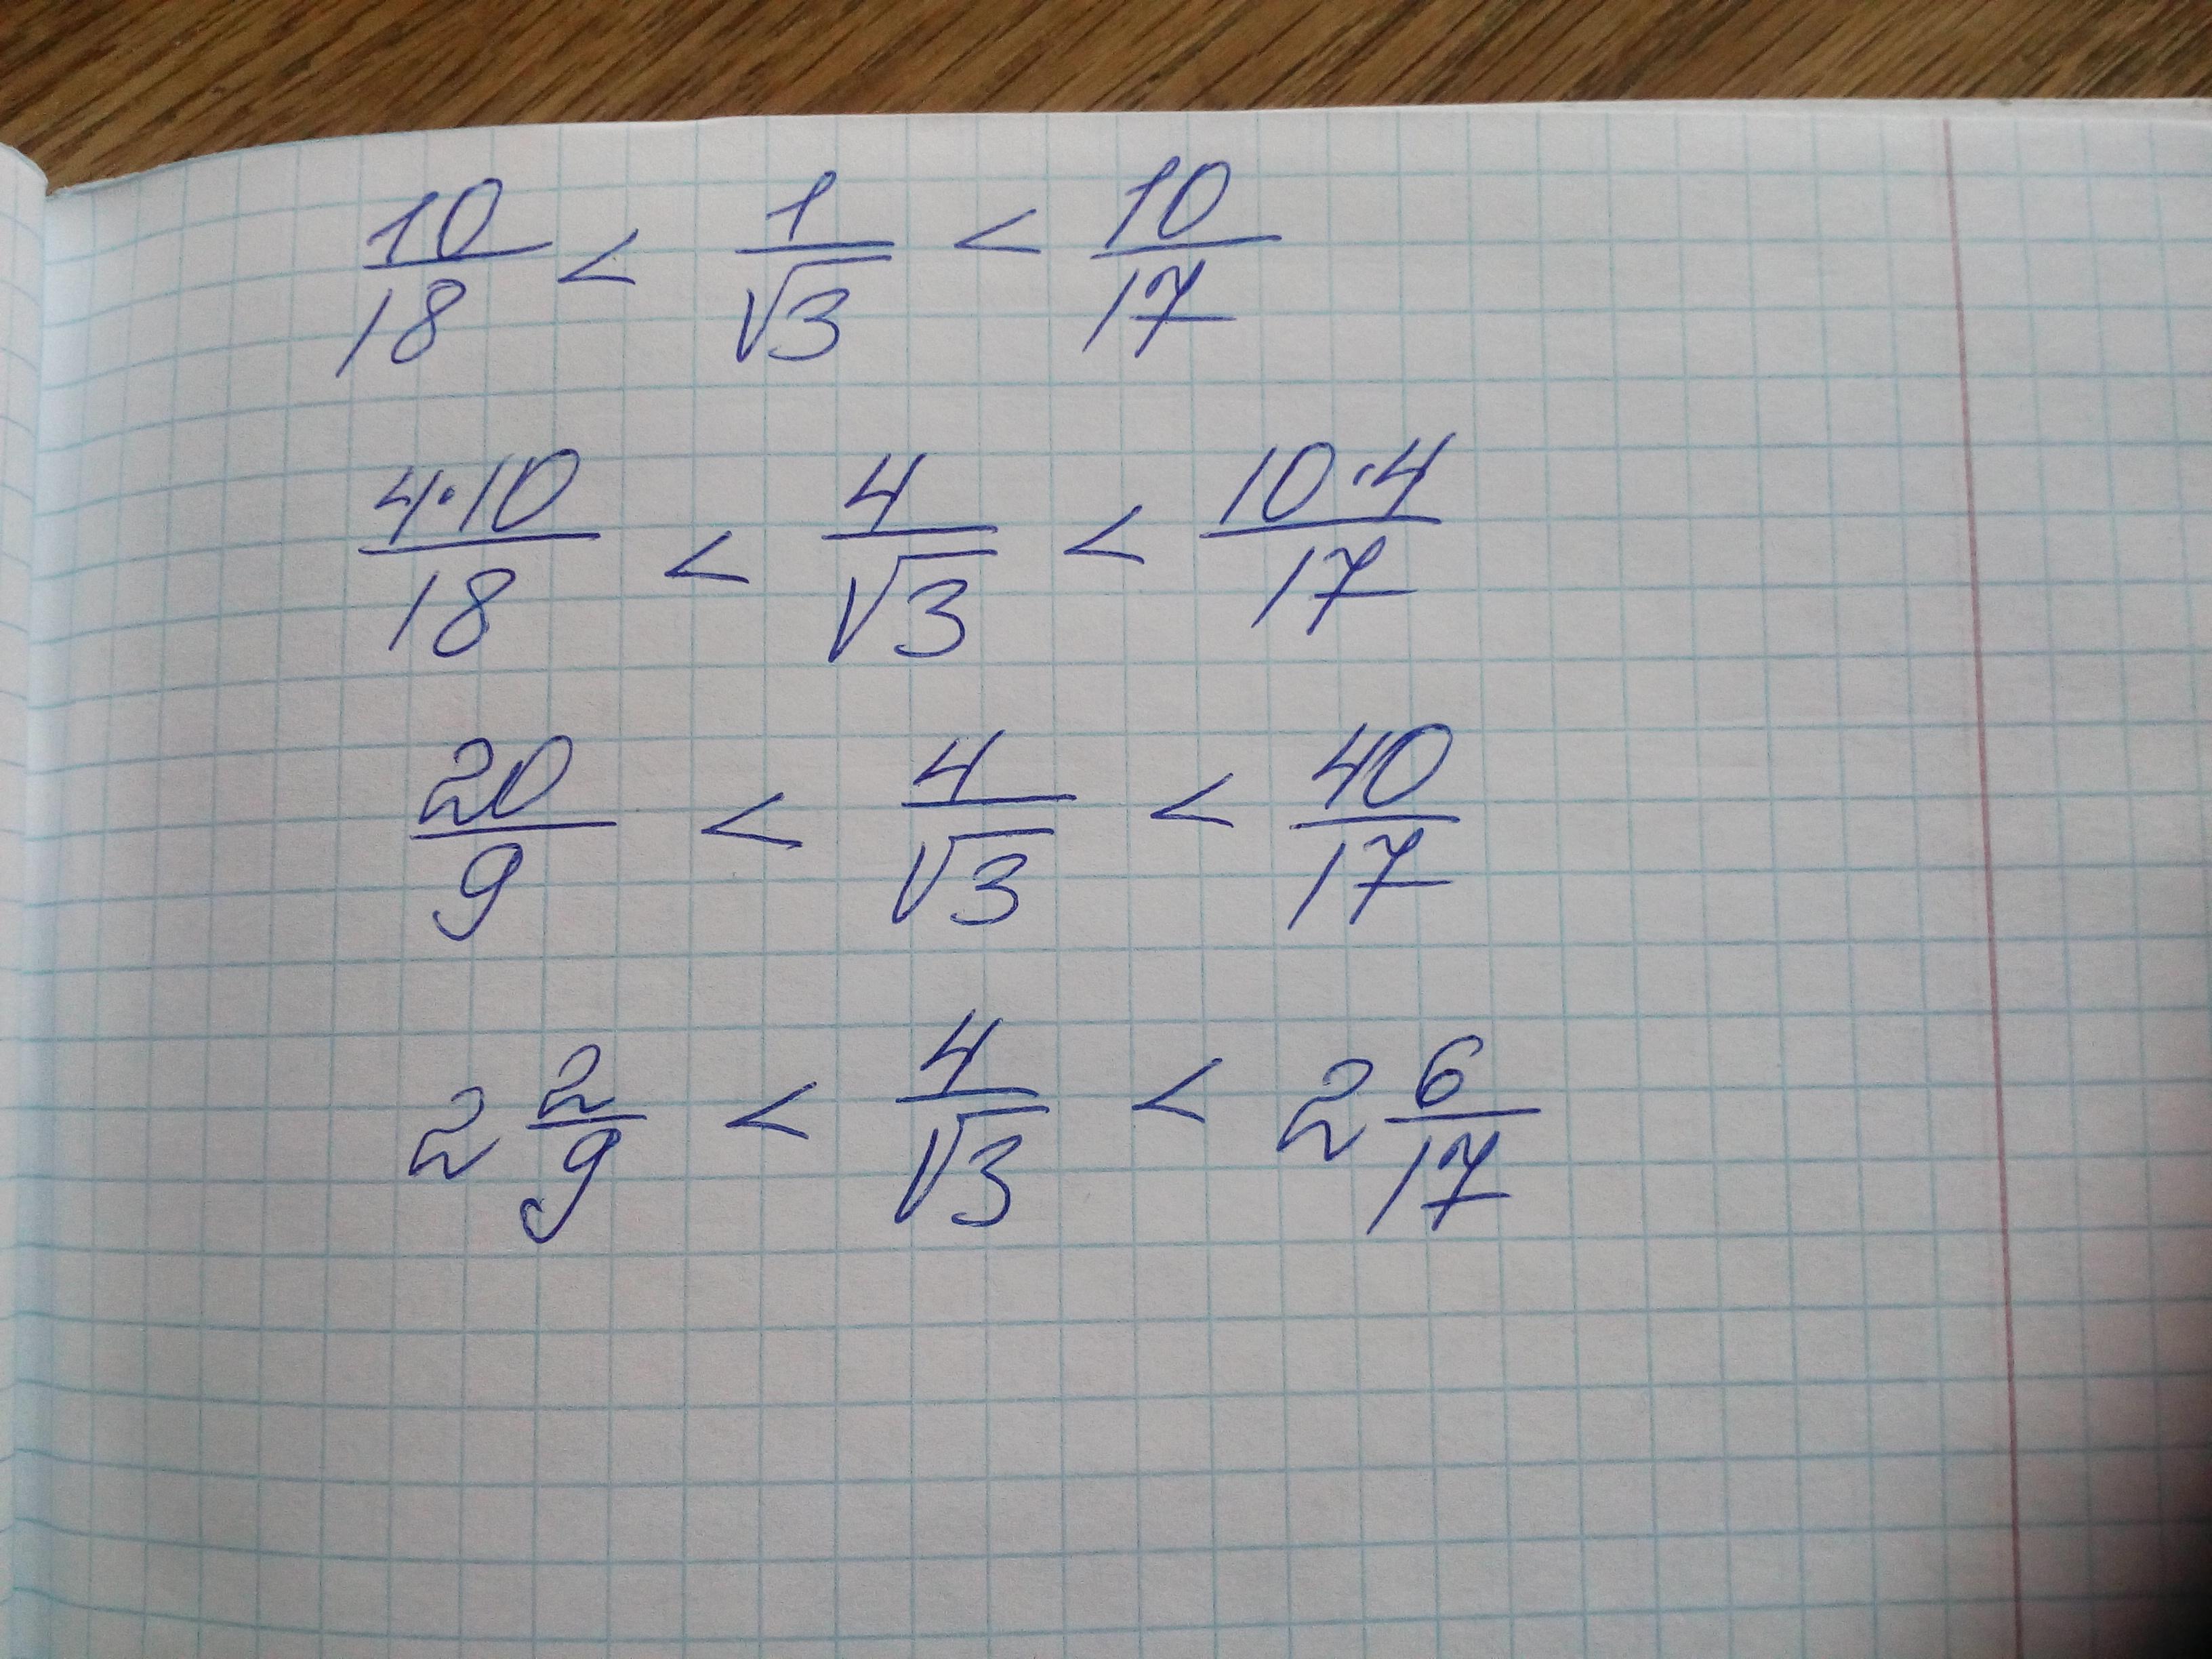 10/18 < 1/√3 < 10/17
4·10/18 < 4/√3 < 10·4/17
20/9 < 4/√3 < 40/17
2 2/9 < 4/√3 < 2 6/17